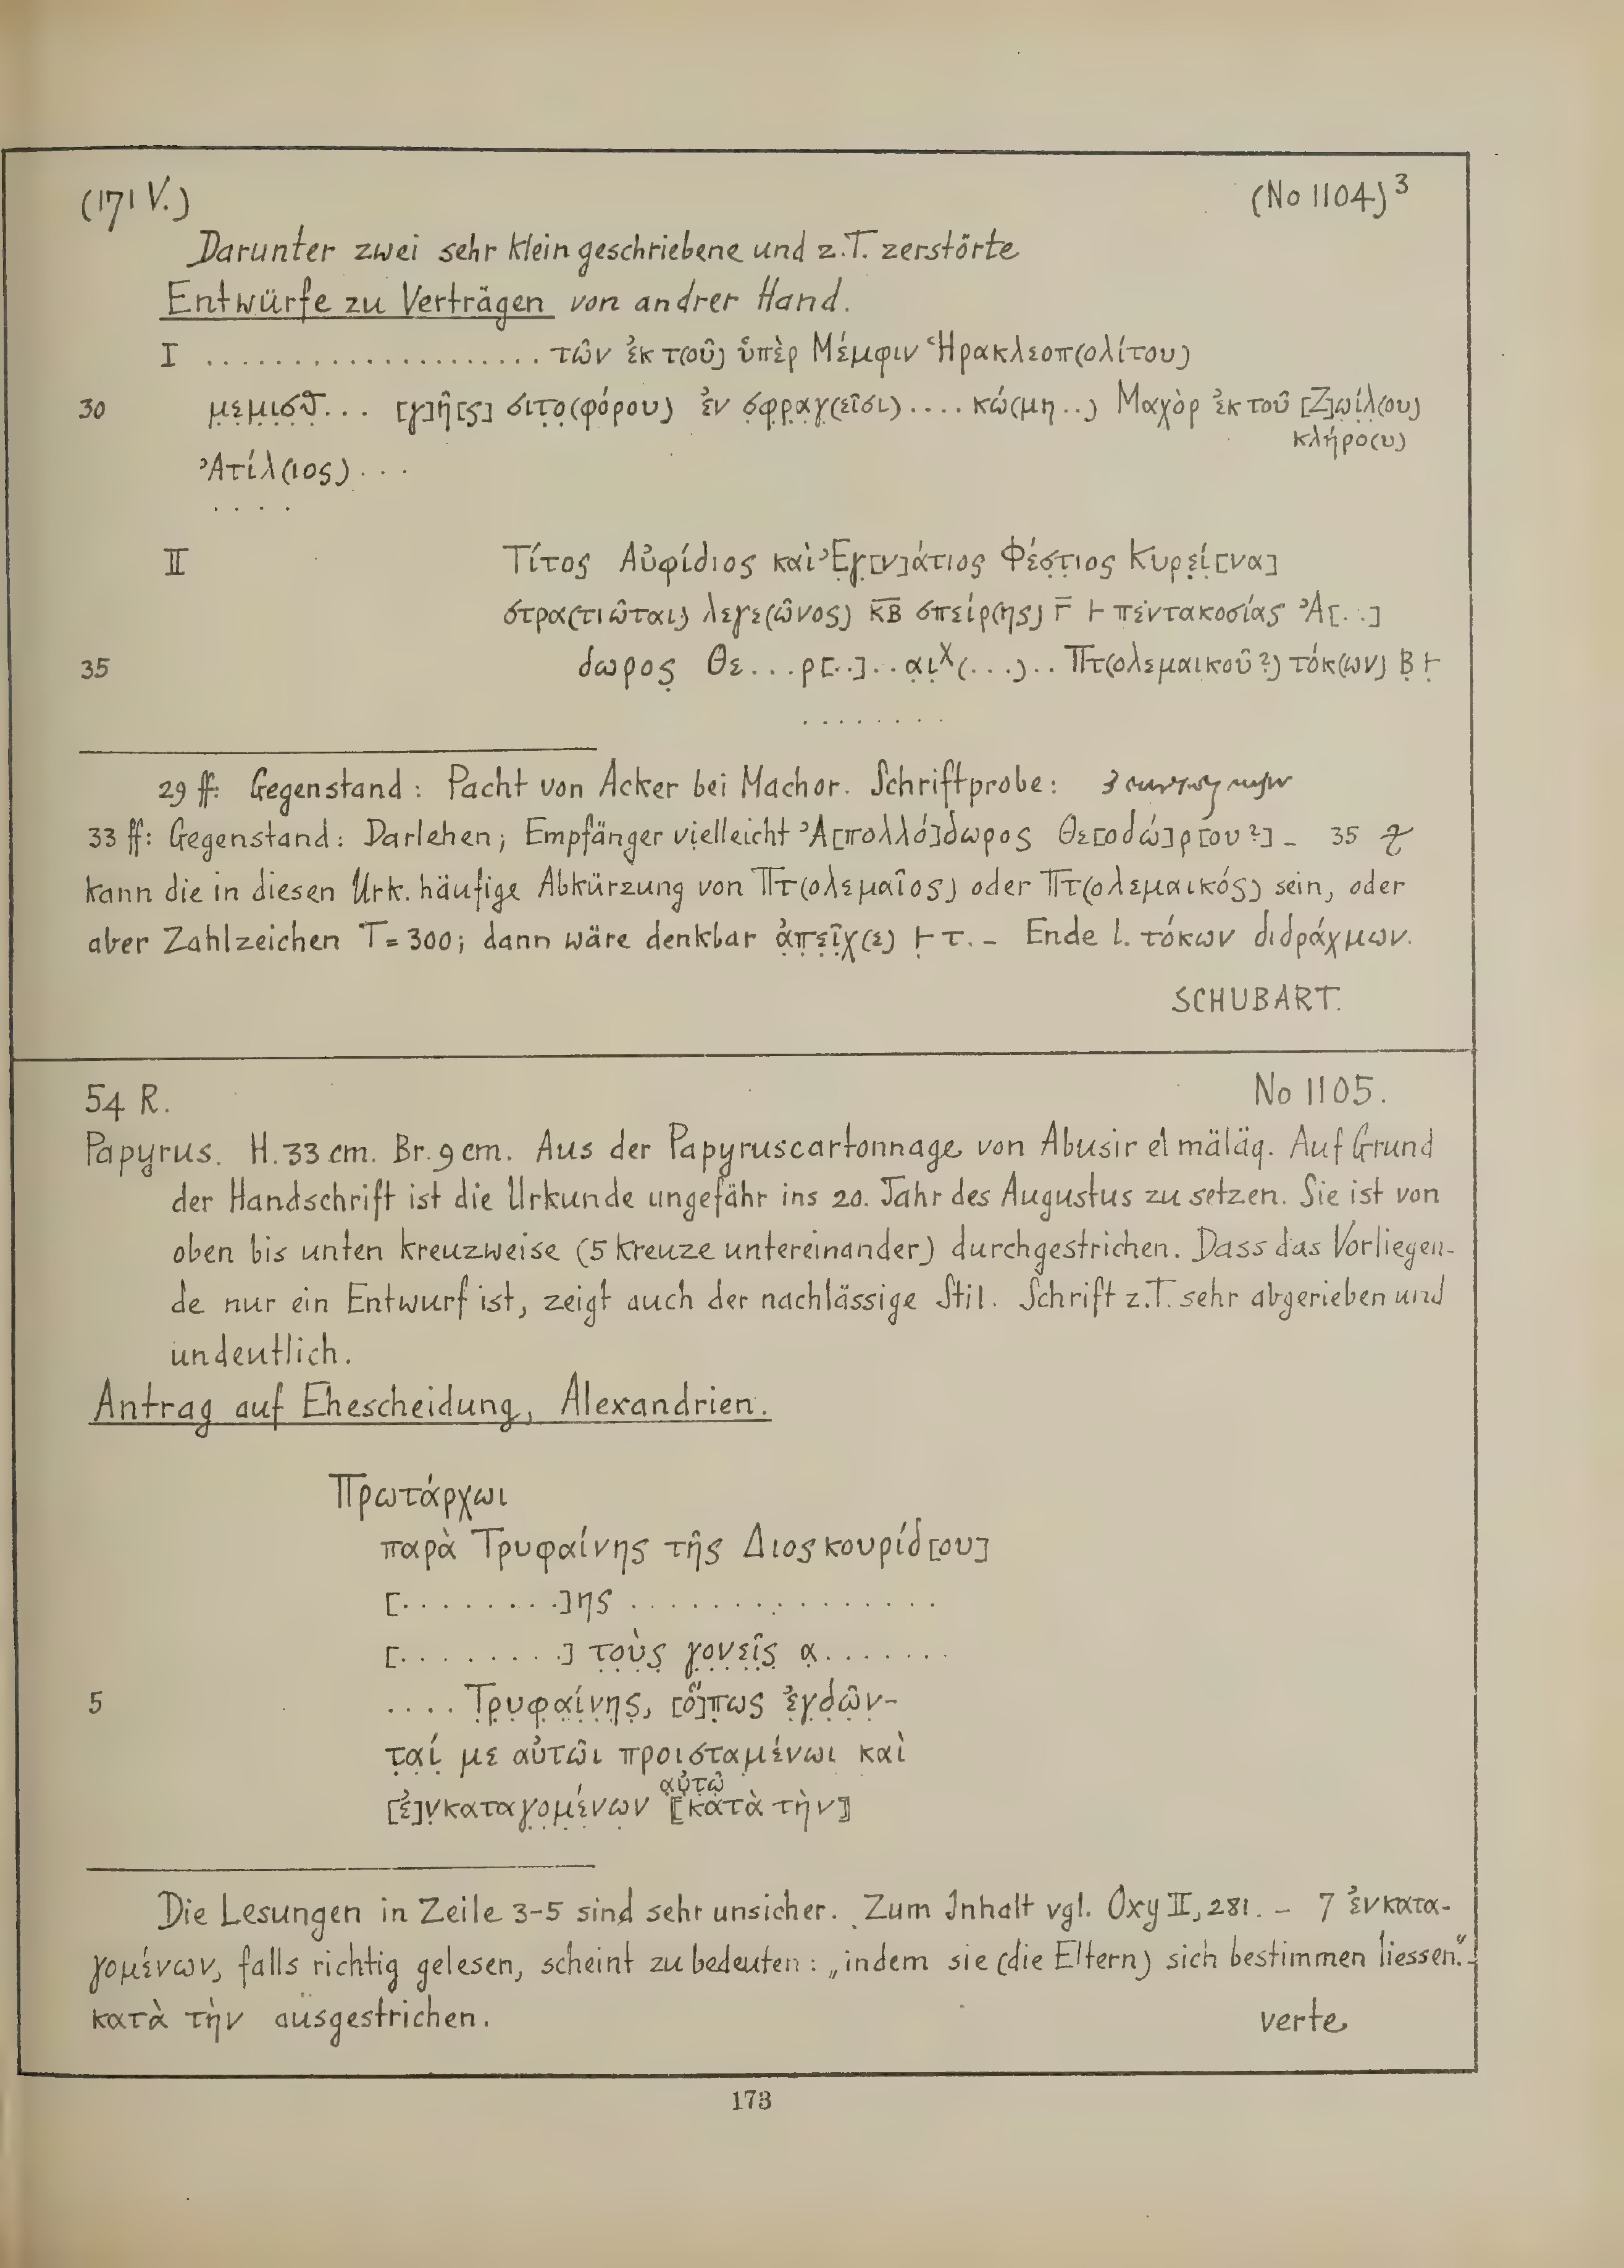 (171 V.) (No 1104)³
Darunter zwei sehr klein geschriebene und z.T. zerstörte
Entwürfe zu Verträgen von andrer Hand.
I .................... τῶν ἐκ τ(οῦ) ὑπὲρ Μέμφιν Ἡρακλεοπ(ολίτου)
30 μ̣ε̣μ̣ι̣σ̣θ̣... [γ]ῆ[ς] σιτ̣ο̣(φόρου) ἐν σ̣φ̣ρ̣α̣γ̣(εῖσι).... κώ(μη..) Μαχὸρ ἐκ τοῦ [Ζ]ω̣ί̣λ̣(ου)
κλήρο(υ)
Ἀτίλ(ιος)...
....
II Τίτος Αὐφίδιος καὶ Ἐγ̣[ν]άτιος Φέσ̣τ̣ιος Κυρε̣ί̣[να]
στρα(τιῶται) λεγε(ῶνος) κ̅β̅ σπείρ(ης) γ̅ ⊢ πεντακοσίας Ἀ[...]
35 δωρος̣ Θε...ρ[..]..α̣ι̣ˣ(...).. Πτ(ολεμαικοῦ?) τόκ(ων) β̣ ⊢̣
........
29 ff: Gegenstand: Pacht von Acker bei Machor. Schriftprobe:
33 ff: Gegenstand: Darlehen; Empfänger vielleicht Ἀ[πολλό]δωρος Θε[οδώ]ρ[ου?] – 35
kann die in diesen Urk. häufige Abkürzung von Πτ(ολεμαῖος) oder Πτ(ολεμαικός) sein, oder
aber Zahlzeichen T = 300; dann wäre denkbar ἀ̣π̣ε̣ῖ̣χ̣(ε) ⊢̣ τ. – Ende l. τόκων διδράχμων.
SCHUBART.
54 R. No 1105.
Papyrus. H. 33 cm. Br. 9 cm. Aus der Papyruscartonnage von Abusir el mäläq. Auf Grund
der Handschrift ist die Urkunde ungefähr ins 20. Jahr des Augustus zu setzen. Sie ist von
oben bis unten kreuzweise (5 Kreuze untereinander) durchgestrichen. Dass das Vorliegen-
de nur ein Entwurf ist, zeigt auch der nachlässige Stil. Schrift z.T. sehr abgerieben und
undeutlich.
Antrag auf Ehescheidung, Alexandrien.
Πρωτάρχωι
παρὰ Τρυφαίνης τῆς Διοσκουρίδ[ου]
[.........]ης ...............
[.........] τ̣ο̣ὺ̣ς̣ γ̣ο̣ν̣ε̣ῖ̣ς̣ α̣.......
5 .... Τ̣ρ̣υ̣φ̣α̣ί̣ν̣η̣ς̣, [ὅ]π̣ως ἐ̣γ̣δ̣ῶ̣ν̣-
τ̣αί̣ με αὐτῶι προισταμένωι καὶ
αὐ̣τ̣ῷ̣
[ἐ]ν̣καταγ̣ο̣μ̣έ̣ν̣ων ⟦κατὰ τὴν⟧
Die Lesungen in Zeile 3-5 sind sehr unsicher. Zum Inhalt vgl. Oxy II, 281. – 7 ἐνκατα-
γομένων, falls richtig gelesen, scheint zu bedeuten: „indem sie (die Eltern) sich bestimmen liessen“. –
κατὰ τὴν ausgestrichen. verte
173